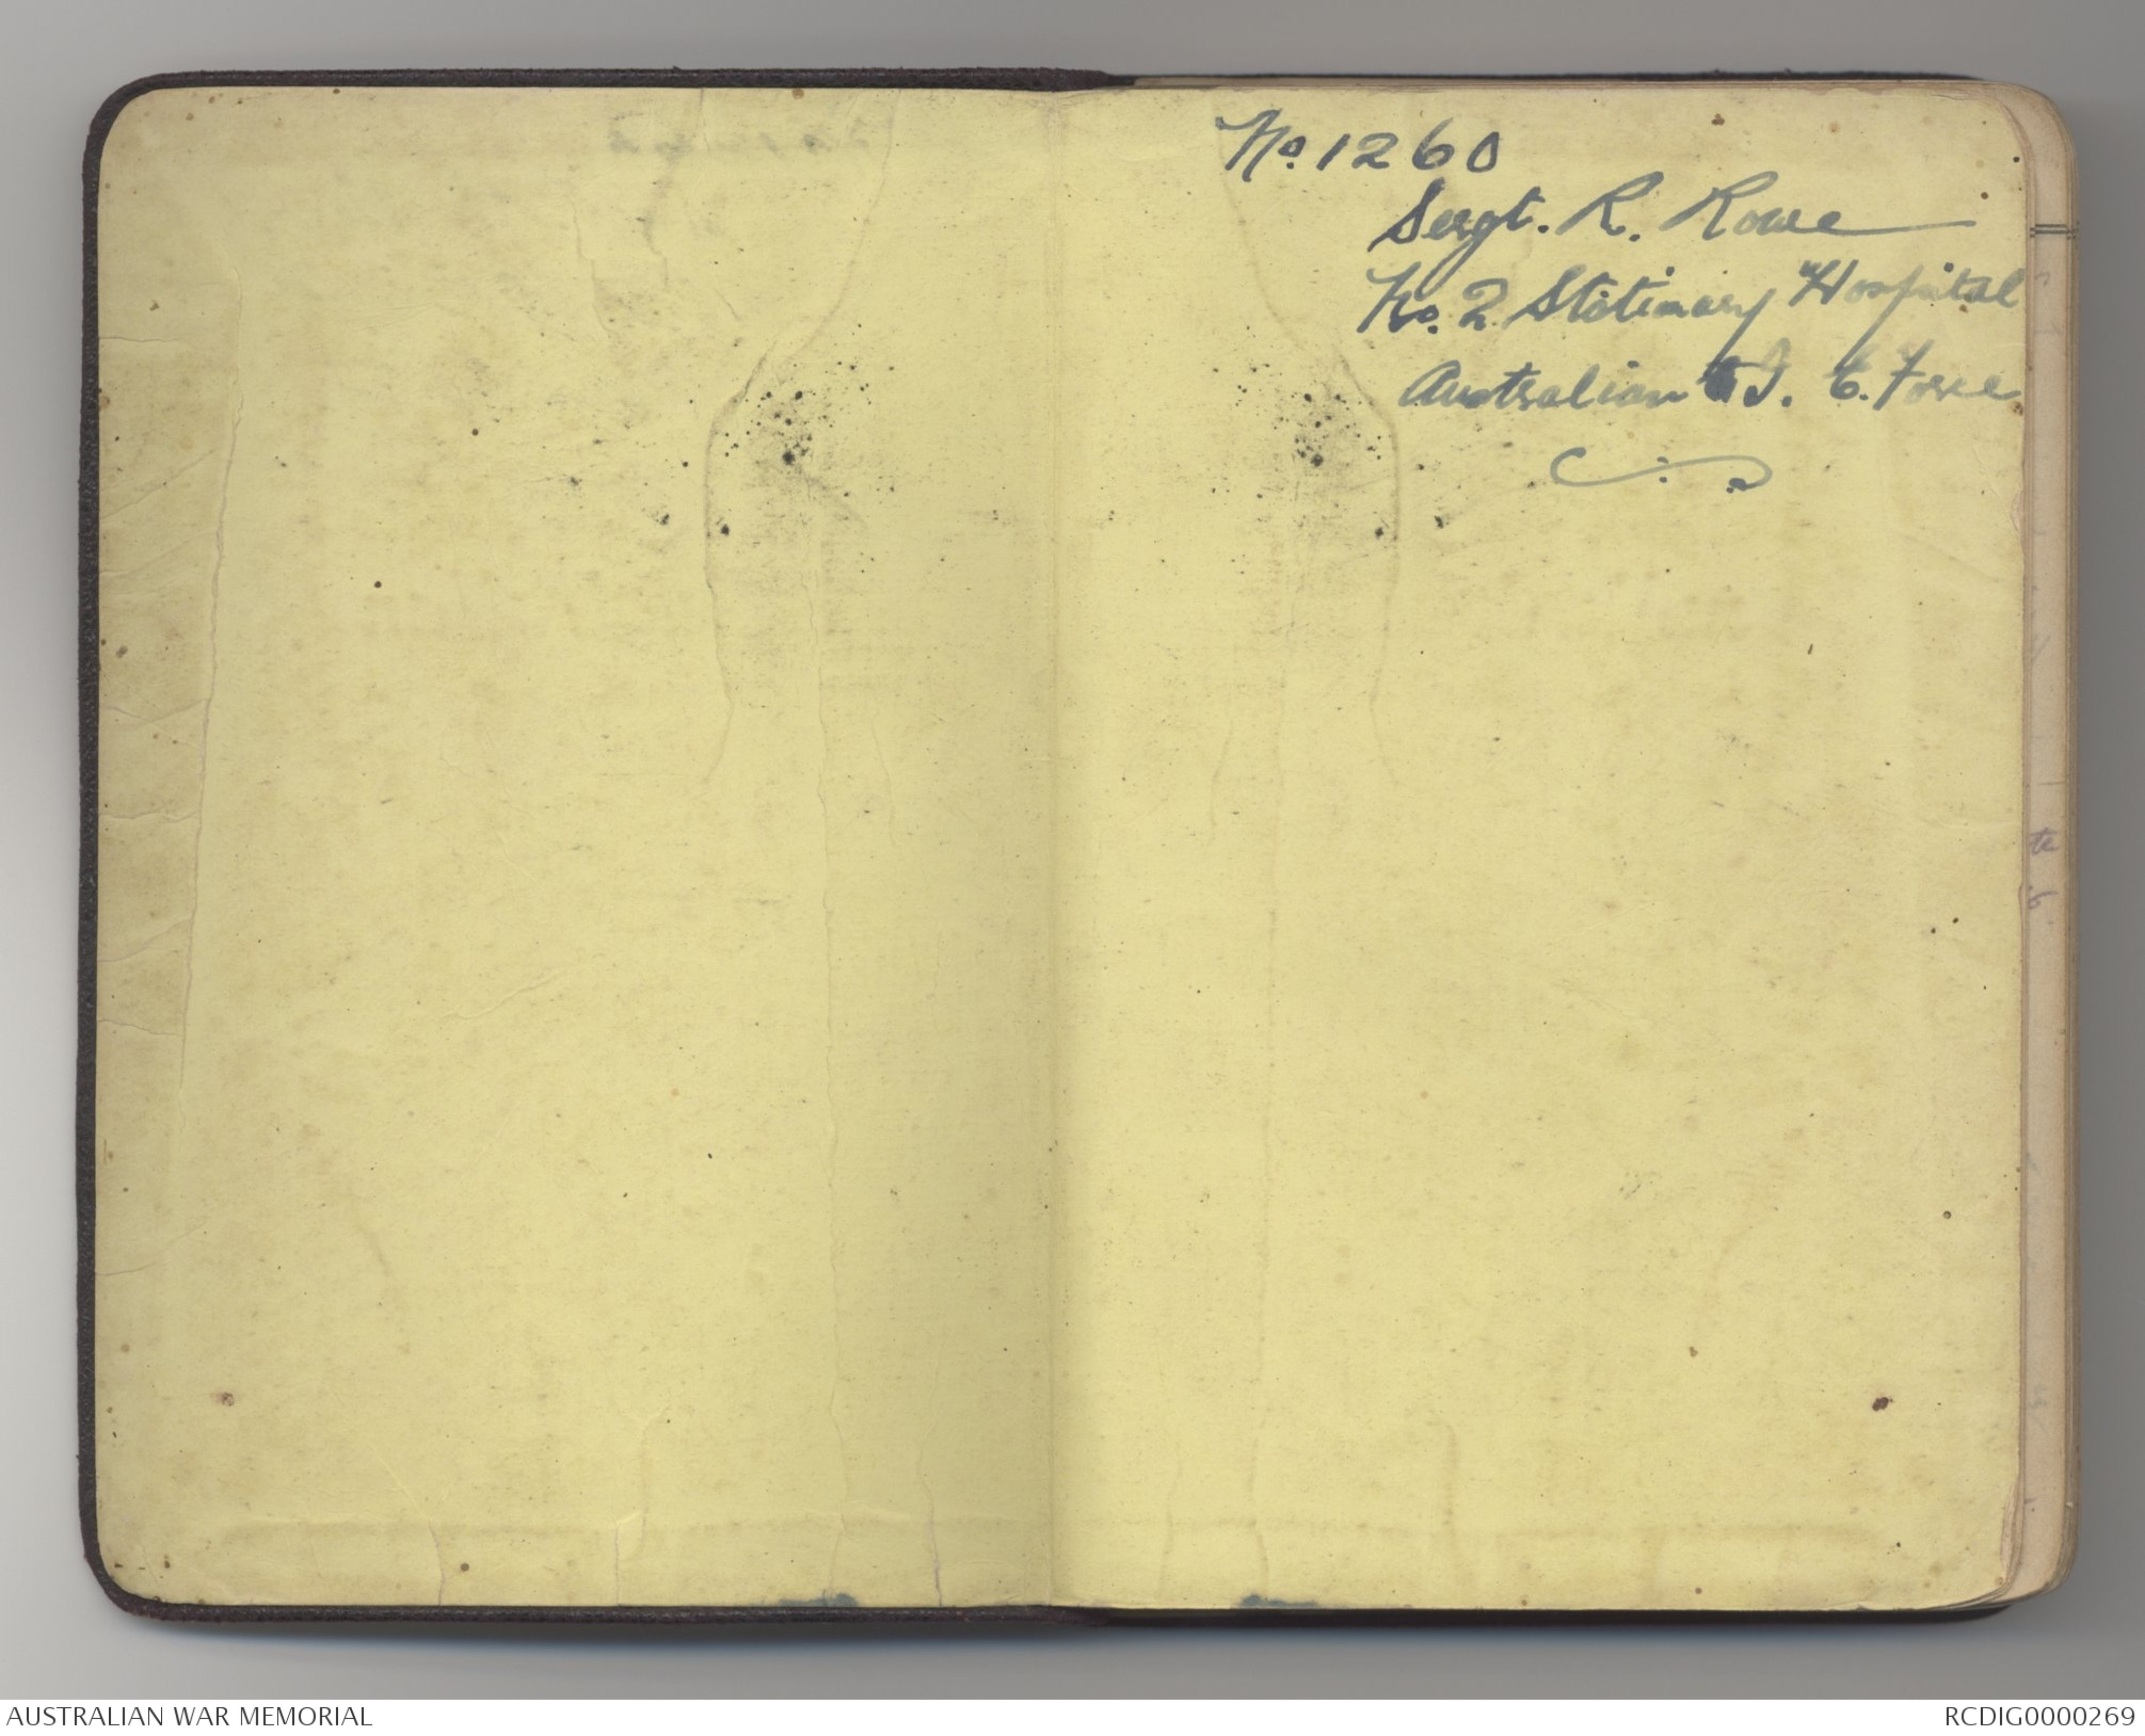 No. 1260
Sergt. R. Rowe
No. 2 Stationary Hospital
Australian I. E. Force
AUSTRALIAN WAR MEMORIAL
RCDIG0000269